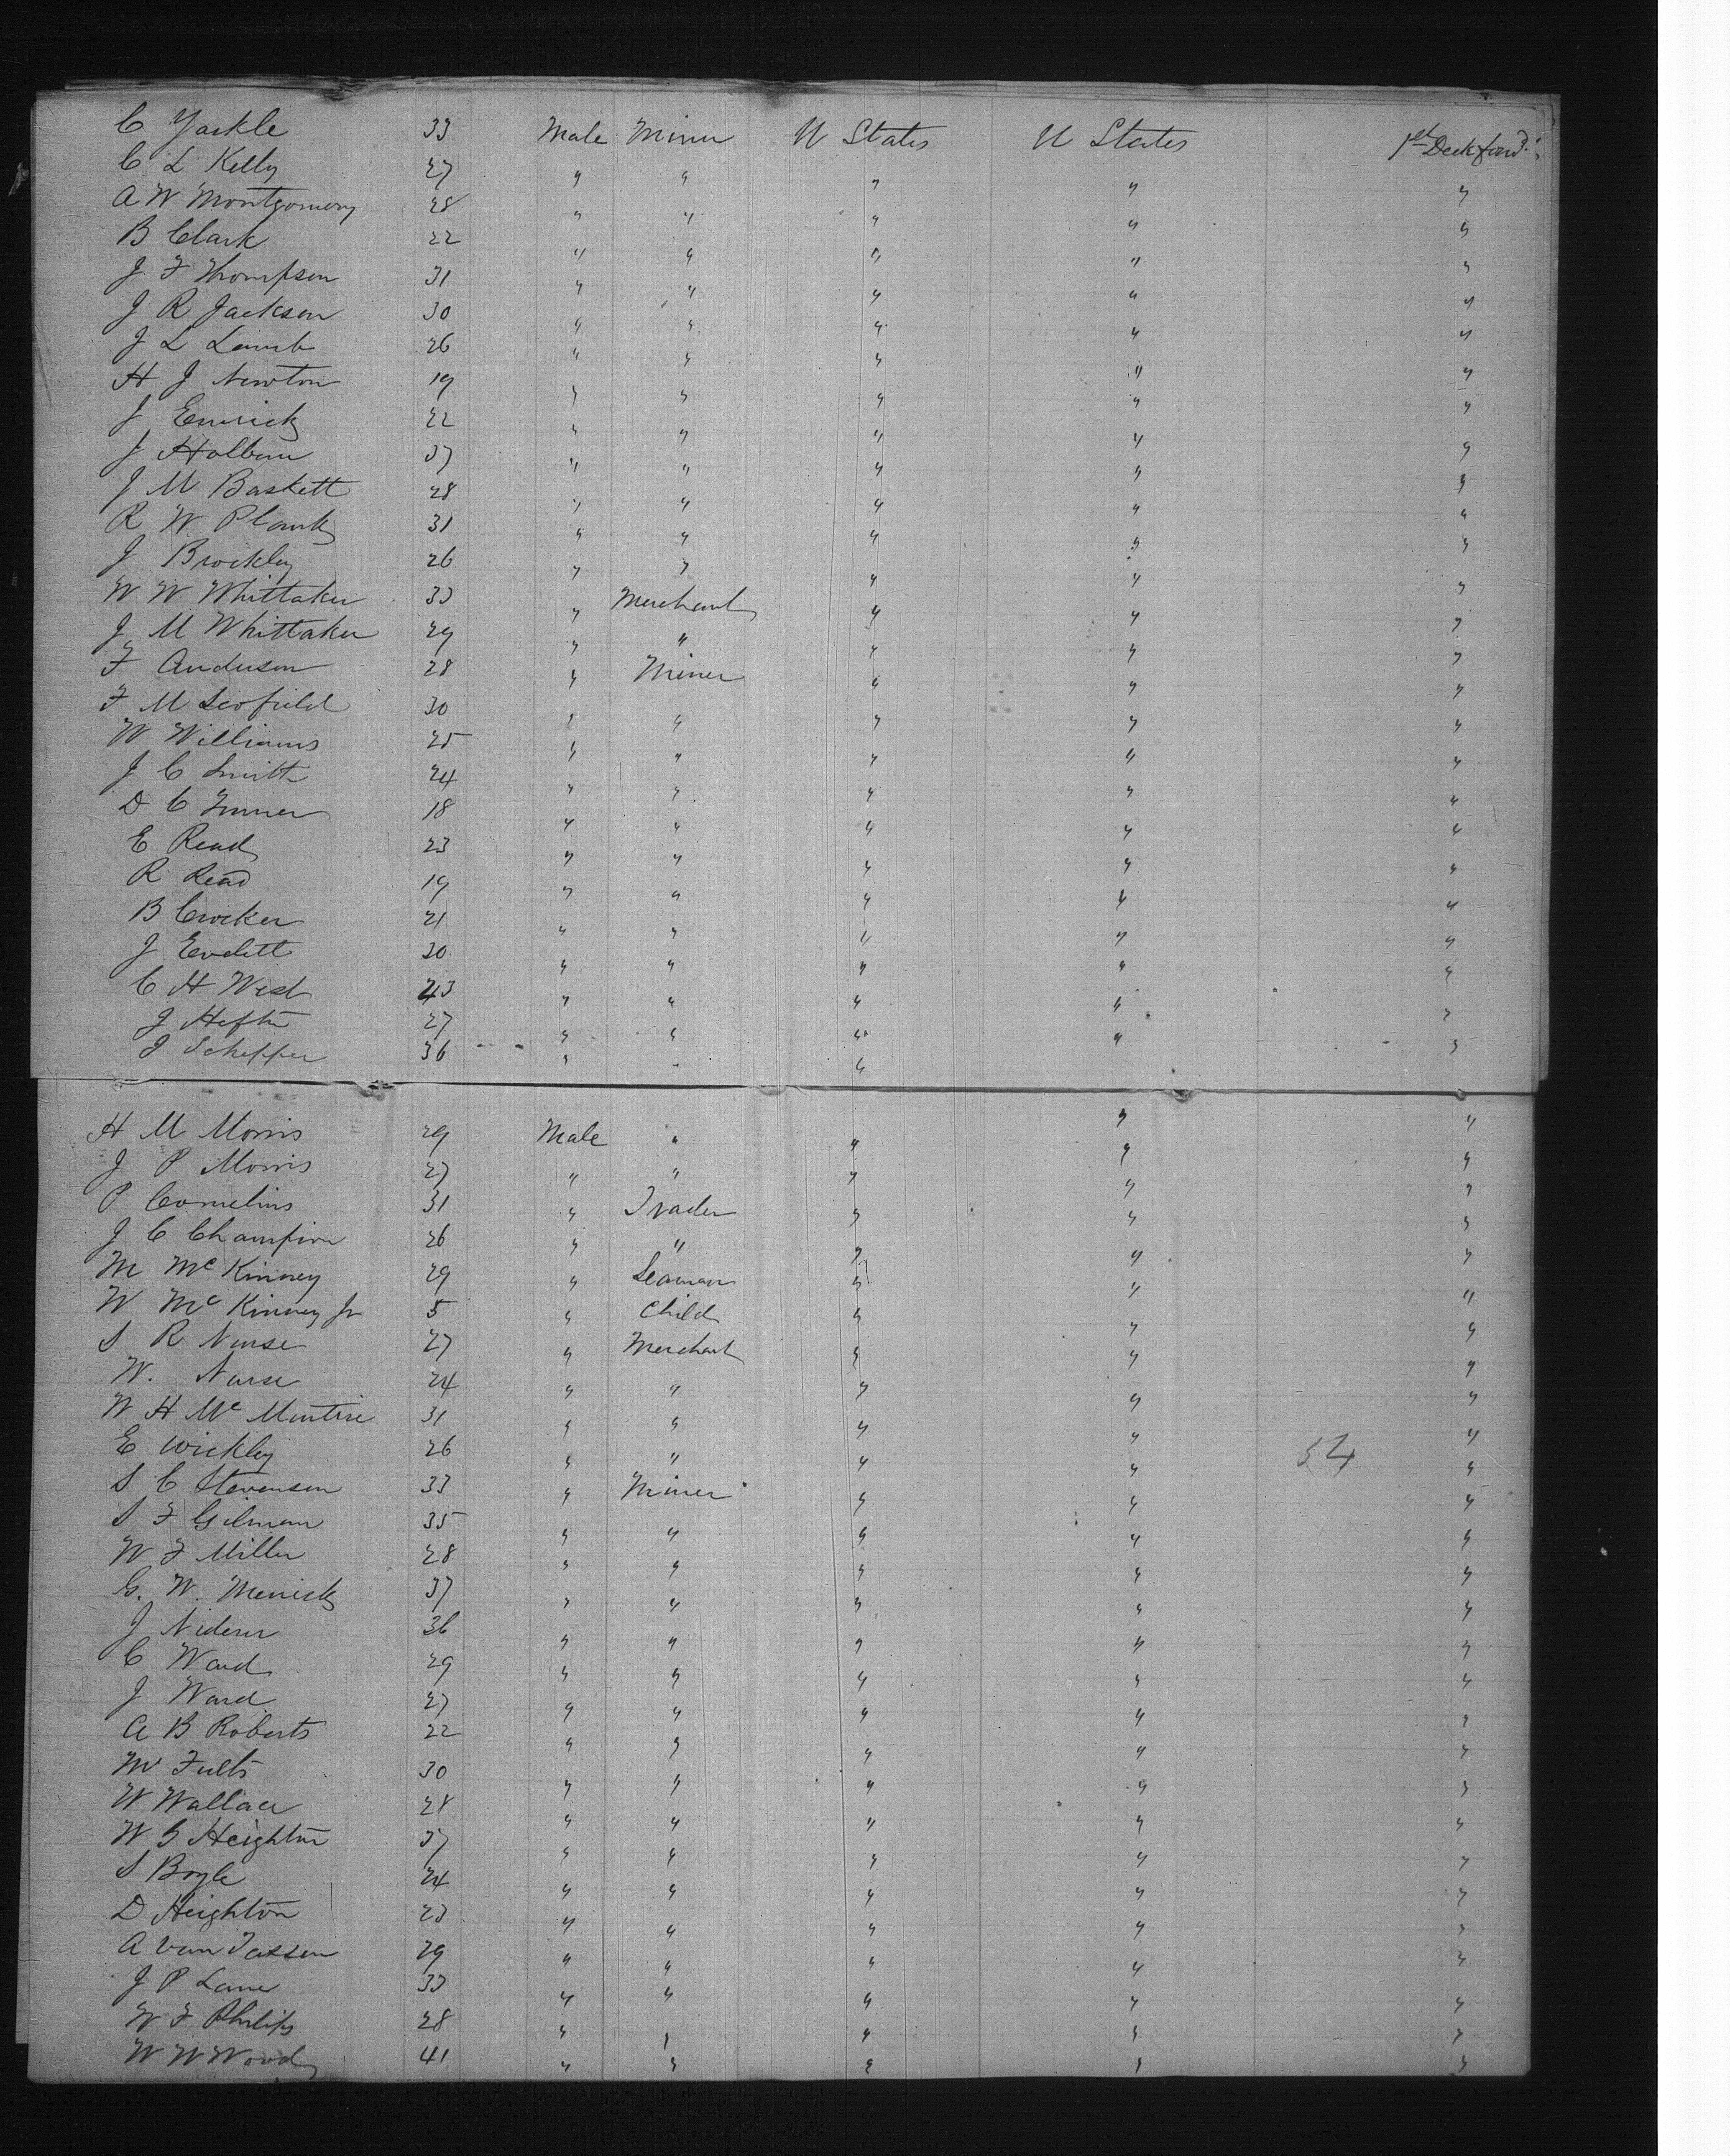 C Yackle 33 Male Miner U States U States 1st Deck forwd
C L Kelly 27 " " " " "
A W Montgomery 28 " " " " "
B Clark 22 " " " " "
J F Thompson 31 " " " " "
J R Jackson 30 " " " " "
J L Lamb 26 " " " " "
H J Newton 19 " " " " "
J Emrick 22 " " " " "
J Holburn 37 " " " " "
J M Baskett 28 " " " " "
R W Plank 31 " " " " "
J Brockley 26 " " " " "
W W Whittaker 33 " Merchant " " "
J M Whittaker 29 " " " " "
F Anderson 28 " Miner " " "
F M Scofield 30 " " " " "
W Williams 25 " " " " "
J C Smith 24 " " " " "
D C 18 " " " " "
E Read 23 " " " " "
R Read 19 " " " " "
B Crocker 21 " " " " "
J Evelett 30 " " " " "
C H West 23 " " " " "
J 27 " " " " "
J Scheffer 36 " " " " "
H M Morris 29 Male " " " "
J P Morris 27 " " " " "
P Cornelius 31 " Trader " " "
J C Champion 26 " " " " "
M McKinney 29 " Seaman " " "
W McKinney Jr 5 " Child " " "
S R Nurse 27 " Merchant " " "
W. Nurse 24 " " " " "
W H Mc Mintire 31 " " " " "
E Wickley 26 " " " " 54 "
S C Stevenson 33 " Miner " " "
S F Gilman 35 " " " " "
W F Miller 28 " " " " "
G. W. Merrick 37 " " " " "
J Niderer 36 " " " " "
C Ward 29 " " " " "
J Ward 27 " " " " "
A B Roberts 22 " " " " "
M Fults 30 " " " " "
W Wallace 28 " " " " "
W G Heighton 37 " " " " "
S Boyle 24 " " " " "
D Heighton 23 " " " " "
A Van Tassen 29 " " " " "
J P Lane 33 " " " " "
W F Philips 28 " " " " "
W W Wood 41 " " " " "